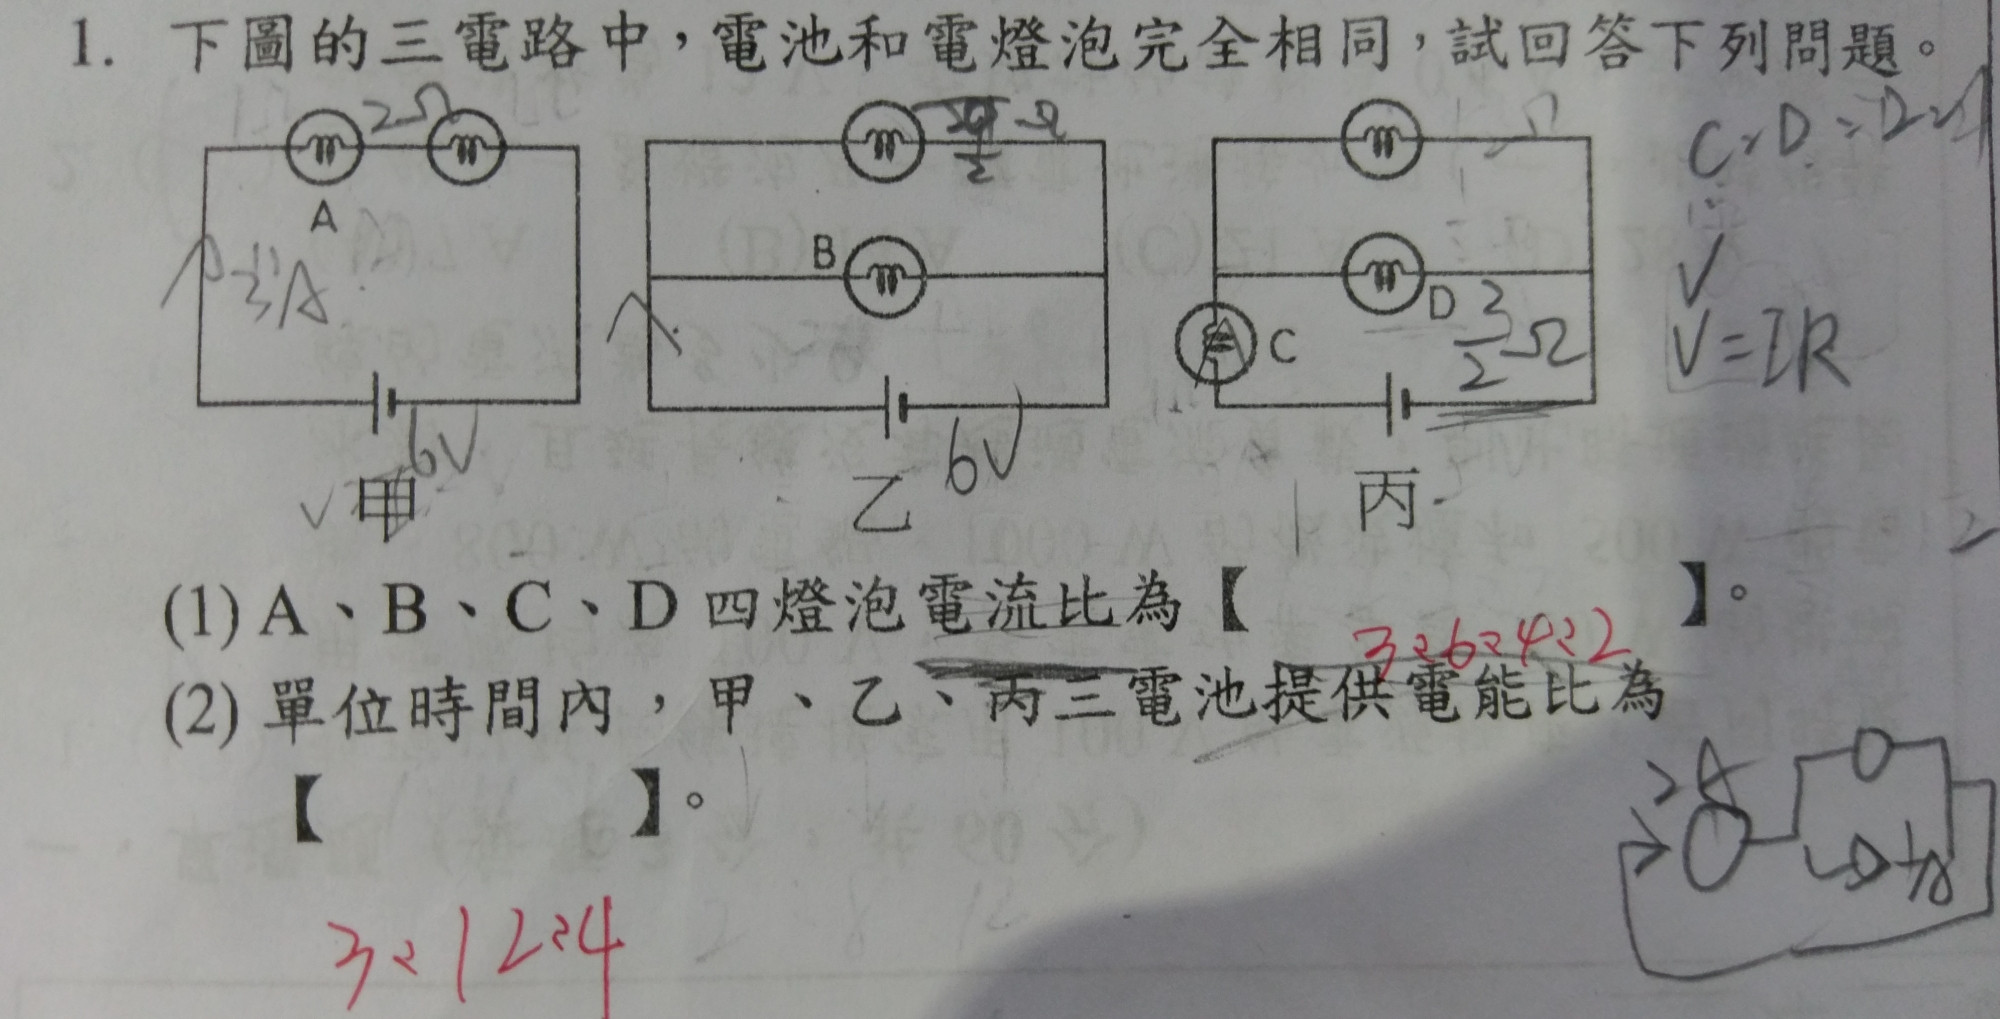 1. 下圖的三電路中，電池和電燈泡完全相同，試回答下列問題。
2Ω
C:D=2:1
A
B
C
D
3/2 Ω
V
V=IR
6V
6V
甲
乙
丙
(1) A、B、C、D 四燈泡電流比為【 】。
3:6:4:2
(2) 單位時間內，甲、乙、丙三電池提供電能比為
【 】。
3:12:4